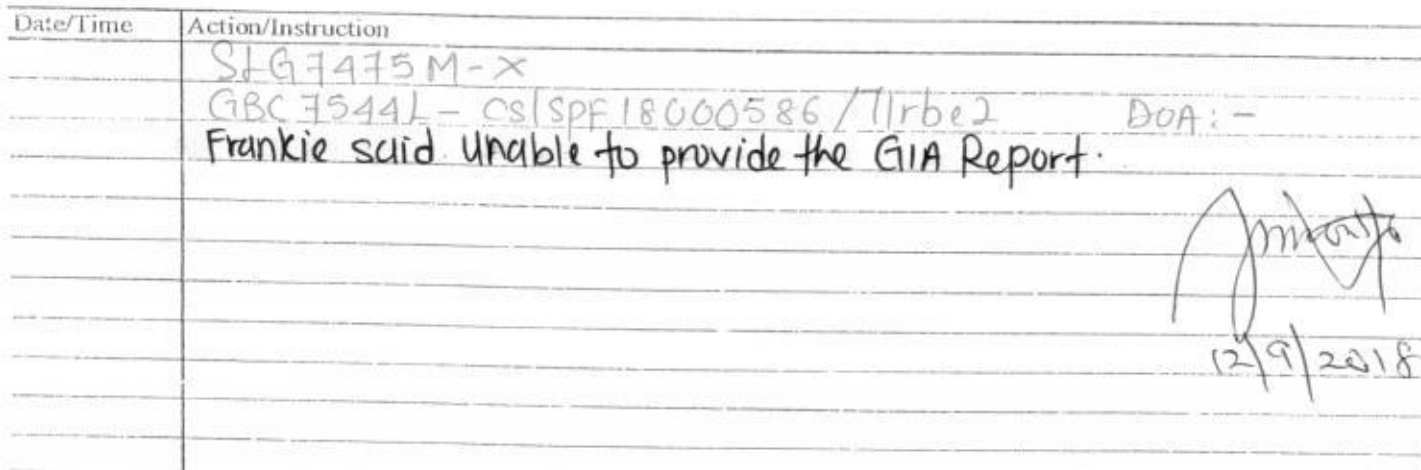 Date/Time Action/Instruction
SLG7475M-X
GBC7544L - CS/SPF18000586/T1rbe2 DOA: -
Frankie said unable to provide the GIA Report.
12/9/2018